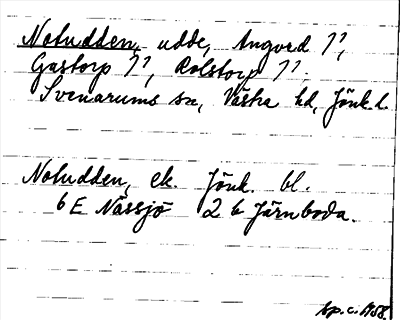 Notudden, udde, Angerd 7⁷,
Gastorp 7⁷, Rolstorp 7⁷.
Svenarums sn, Västra hd, Jönk. l.
Notudden, ek. Jönk. bl.
6 E Nässjö 2 b Järnboda.
sp. c. 1958.